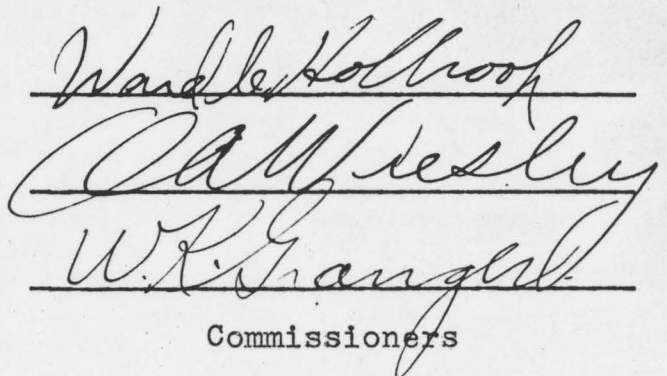 Ward C. Holbrook
O A Wiesley
W. K. Granger
Commissioners